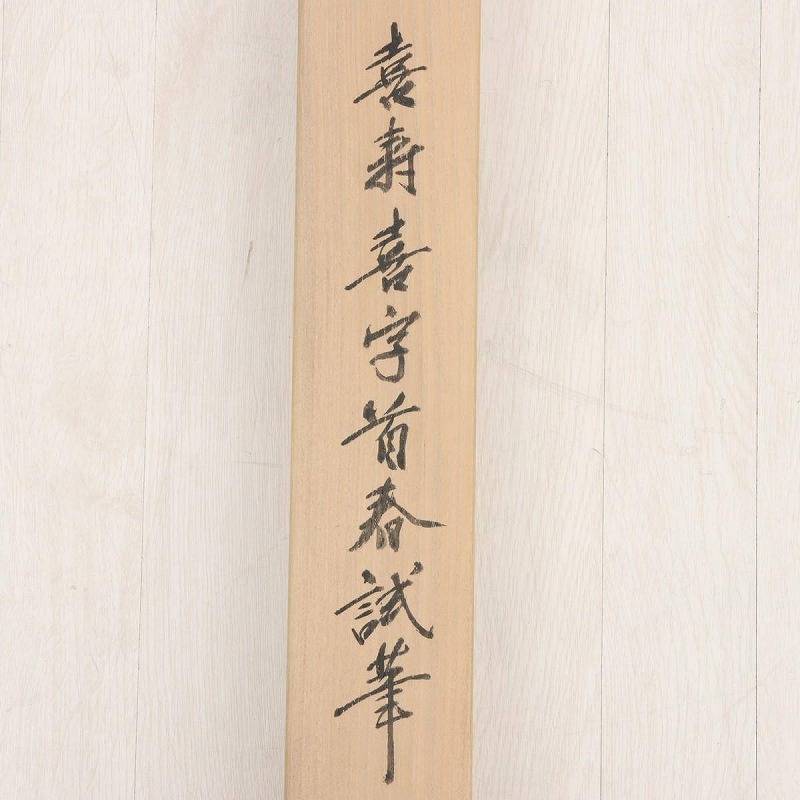 喜寿喜字首春試筆